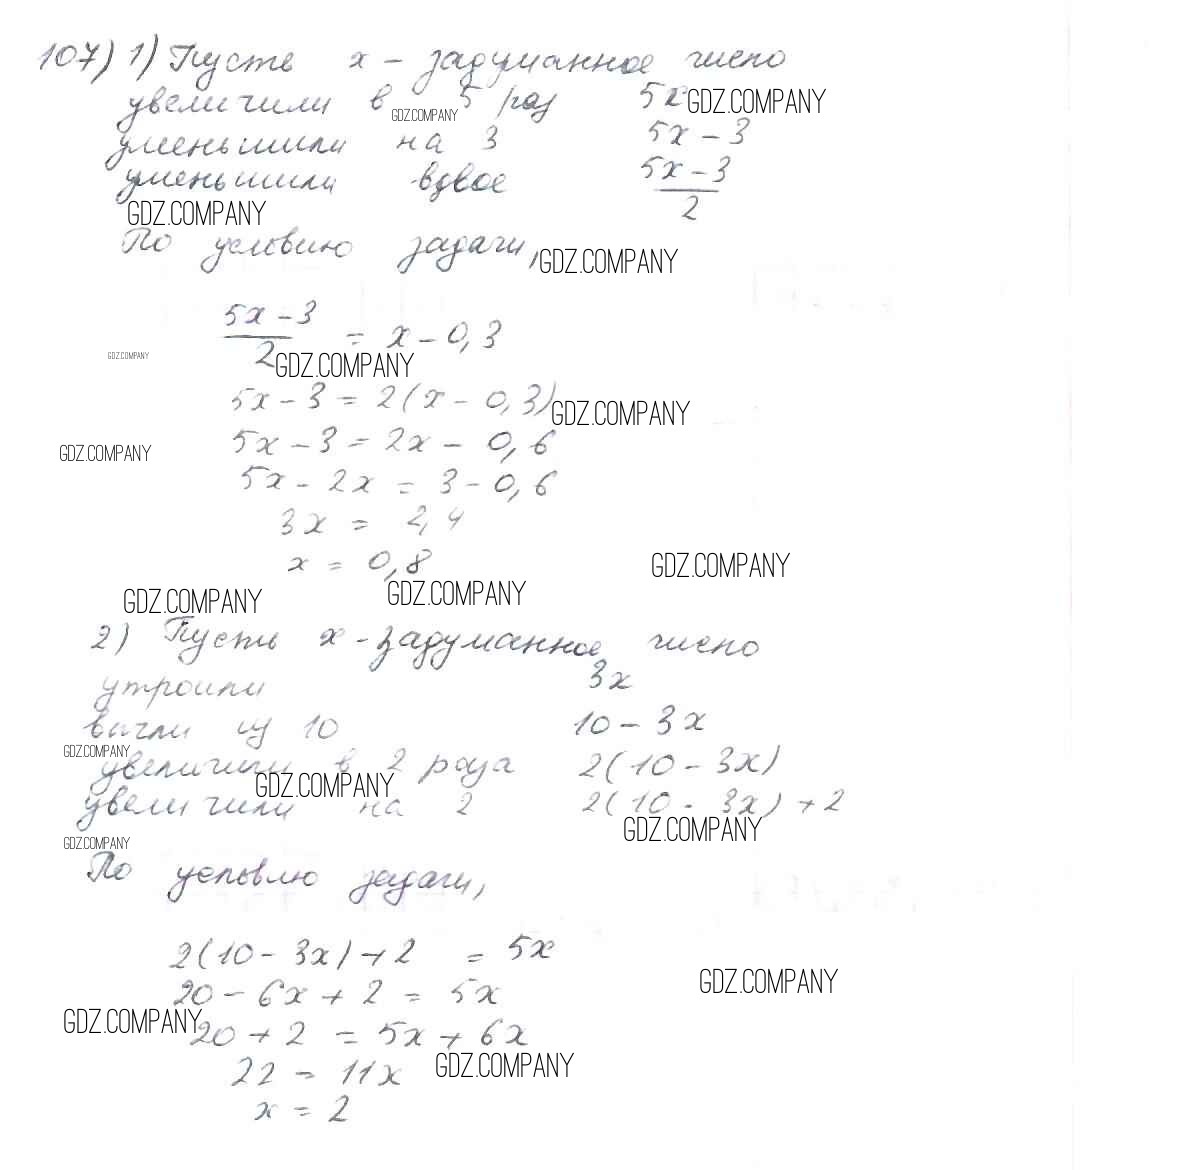 107) 1) Пусть x - задуманное число
увеличили в 5 раз 5x GDZ.COMPANY
GDZ.COMPANY
уменьшили на 3 5x - 3
уменьшили вдвое (5x - 3)/2
GDZ.COMPANY
По условию задачи, GDZ.COMPANY
(5x - 3)/2 = x - 0,3
GDZ.COMPANY GDZ.COMPANY
5x - 3 = 2(x - 0,3) GDZ.COMPANY
GDZ.COMPANY 5x - 3 = 2x - 0,6
5x - 2x = 3 - 0,6
3x = 2,4
x = 0,8 GDZ.COMPANY
GDZ.COMPANY GDZ.COMPANY
2) Пусть x - задуманное число
утроили 3x
вычли из 10 10 - 3x
GDZ.COMPANY
увеличили в 2 раза 2(10 - 3x)
GDZ.COMPANY
увеличили на 2 2(10 - 3x) + 2
GDZ.COMPANY
GDZ.COMPANY
По условию задачи,
2(10 - 3x) + 2 = 5x
GDZ.COMPANY
20 - 6x + 2 = 5x
GDZ.COMPANY 20 + 2 = 5x + 6x
22 = 11x GDZ.COMPANY
x = 2